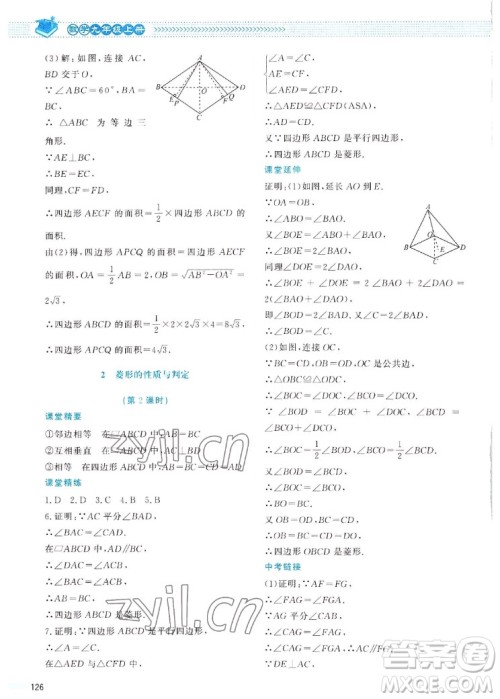 数学九年级上册
(3)解:如图,连接 AC,
BD 交于 O,
∵∠ABC=∠BCD=
∴△ABC 为等边三
角形.
∵AE⊥BC,
∴BE=EC,
同理,CF=FD,
∴四边形 AECF 的面积=1/2×四边形 ABCD
的面积.
由(2)得,四边形 APCQ 的面积=四边形 AECF
的面积,OA=1/2AB=2,OB=√(AB²-OA²)=
2√3,
∴四边形 ABCD 的面积=1/2×2×2√3×4=8√3,
∴四边形 APCQ 的面积=4√3.
2 菱形的性质与判定
(第2课时)
课堂精要
①邻边相等 在▱ABCD 中 AB=BC
②互相垂直 在▱ABCD 中,AC⊥BD
③相等 在四边形 ABCD 中,AB=BC=CD=AD
课堂精练
1. D 2. D 3. C 4. B 5. B
6. 证明:∵AC 平分∠BAD,
∴∠BAC=∠CAD.
在▱ABCD 中,AD∥BC,
∴∠DAC=∠ACB,
∴∠BAC=∠ACB,
∴AB=BC,
∴四边形 ABCD 是菱形.
7. 证明:∵AC⊥EF,
∴∠AOE=∠AOF=90°.
∵AC 平分∠BAD,
∴∠EAO=∠FAO.
∴AE=CF,
∴∠AED=∠CFD,
∴△AED≌△CFD(ASA),
∴AD=CD.
又∵四边形 ABCD 是平行四边形,
∴四边形 ABCD 是菱形.
课堂延伸
证明:(1)如图,延长 AO 到 E.
∵OA=OB,
∴∠ABO=∠BAO.
又∠BOE=∠ABO+∠BAO,
∴∠BOE=2∠BAO.
同理∠DOE=2∠DAO,
∴∠BOE+∠DOE=2∠BAO+
2∠DAO,
即∠BOD=2∠BAD.
又∠C=2∠BAD,
∴∠BOD=∠C.
(2)如图,连接 OC.
∵OB=OD,CB=CD,OC 是公共边,
∴△OBC≌△ODC,
∴∠BOC=∠DOC,∠BCO=∠DCO.
又∵∠BOD=∠BOC+∠DOC,∠BCD=∠BCO+
∠DCO,
∴∠BOC=1/2∠BOD,∠BCO=1/2∠BCD.
又∠BOD=∠BCD,
∴∠BOC=∠BCO,
∴BO=BC.
又OB=OD,BC=CD,
∴OB=BC=CD=DO,
∴四边形 OBCD 是菱形.
中考链接
(1)证明:∵AF=FG,
∴∠FAG=∠FGA.
∵AG 平分∠CAB,
∴∠CAG=∠FAG,
∴∠CAG=∠FGA,
∴AC∥FG.
∵DE⊥AC,
126
zyjl.cn
答案圈
MXQE.COM